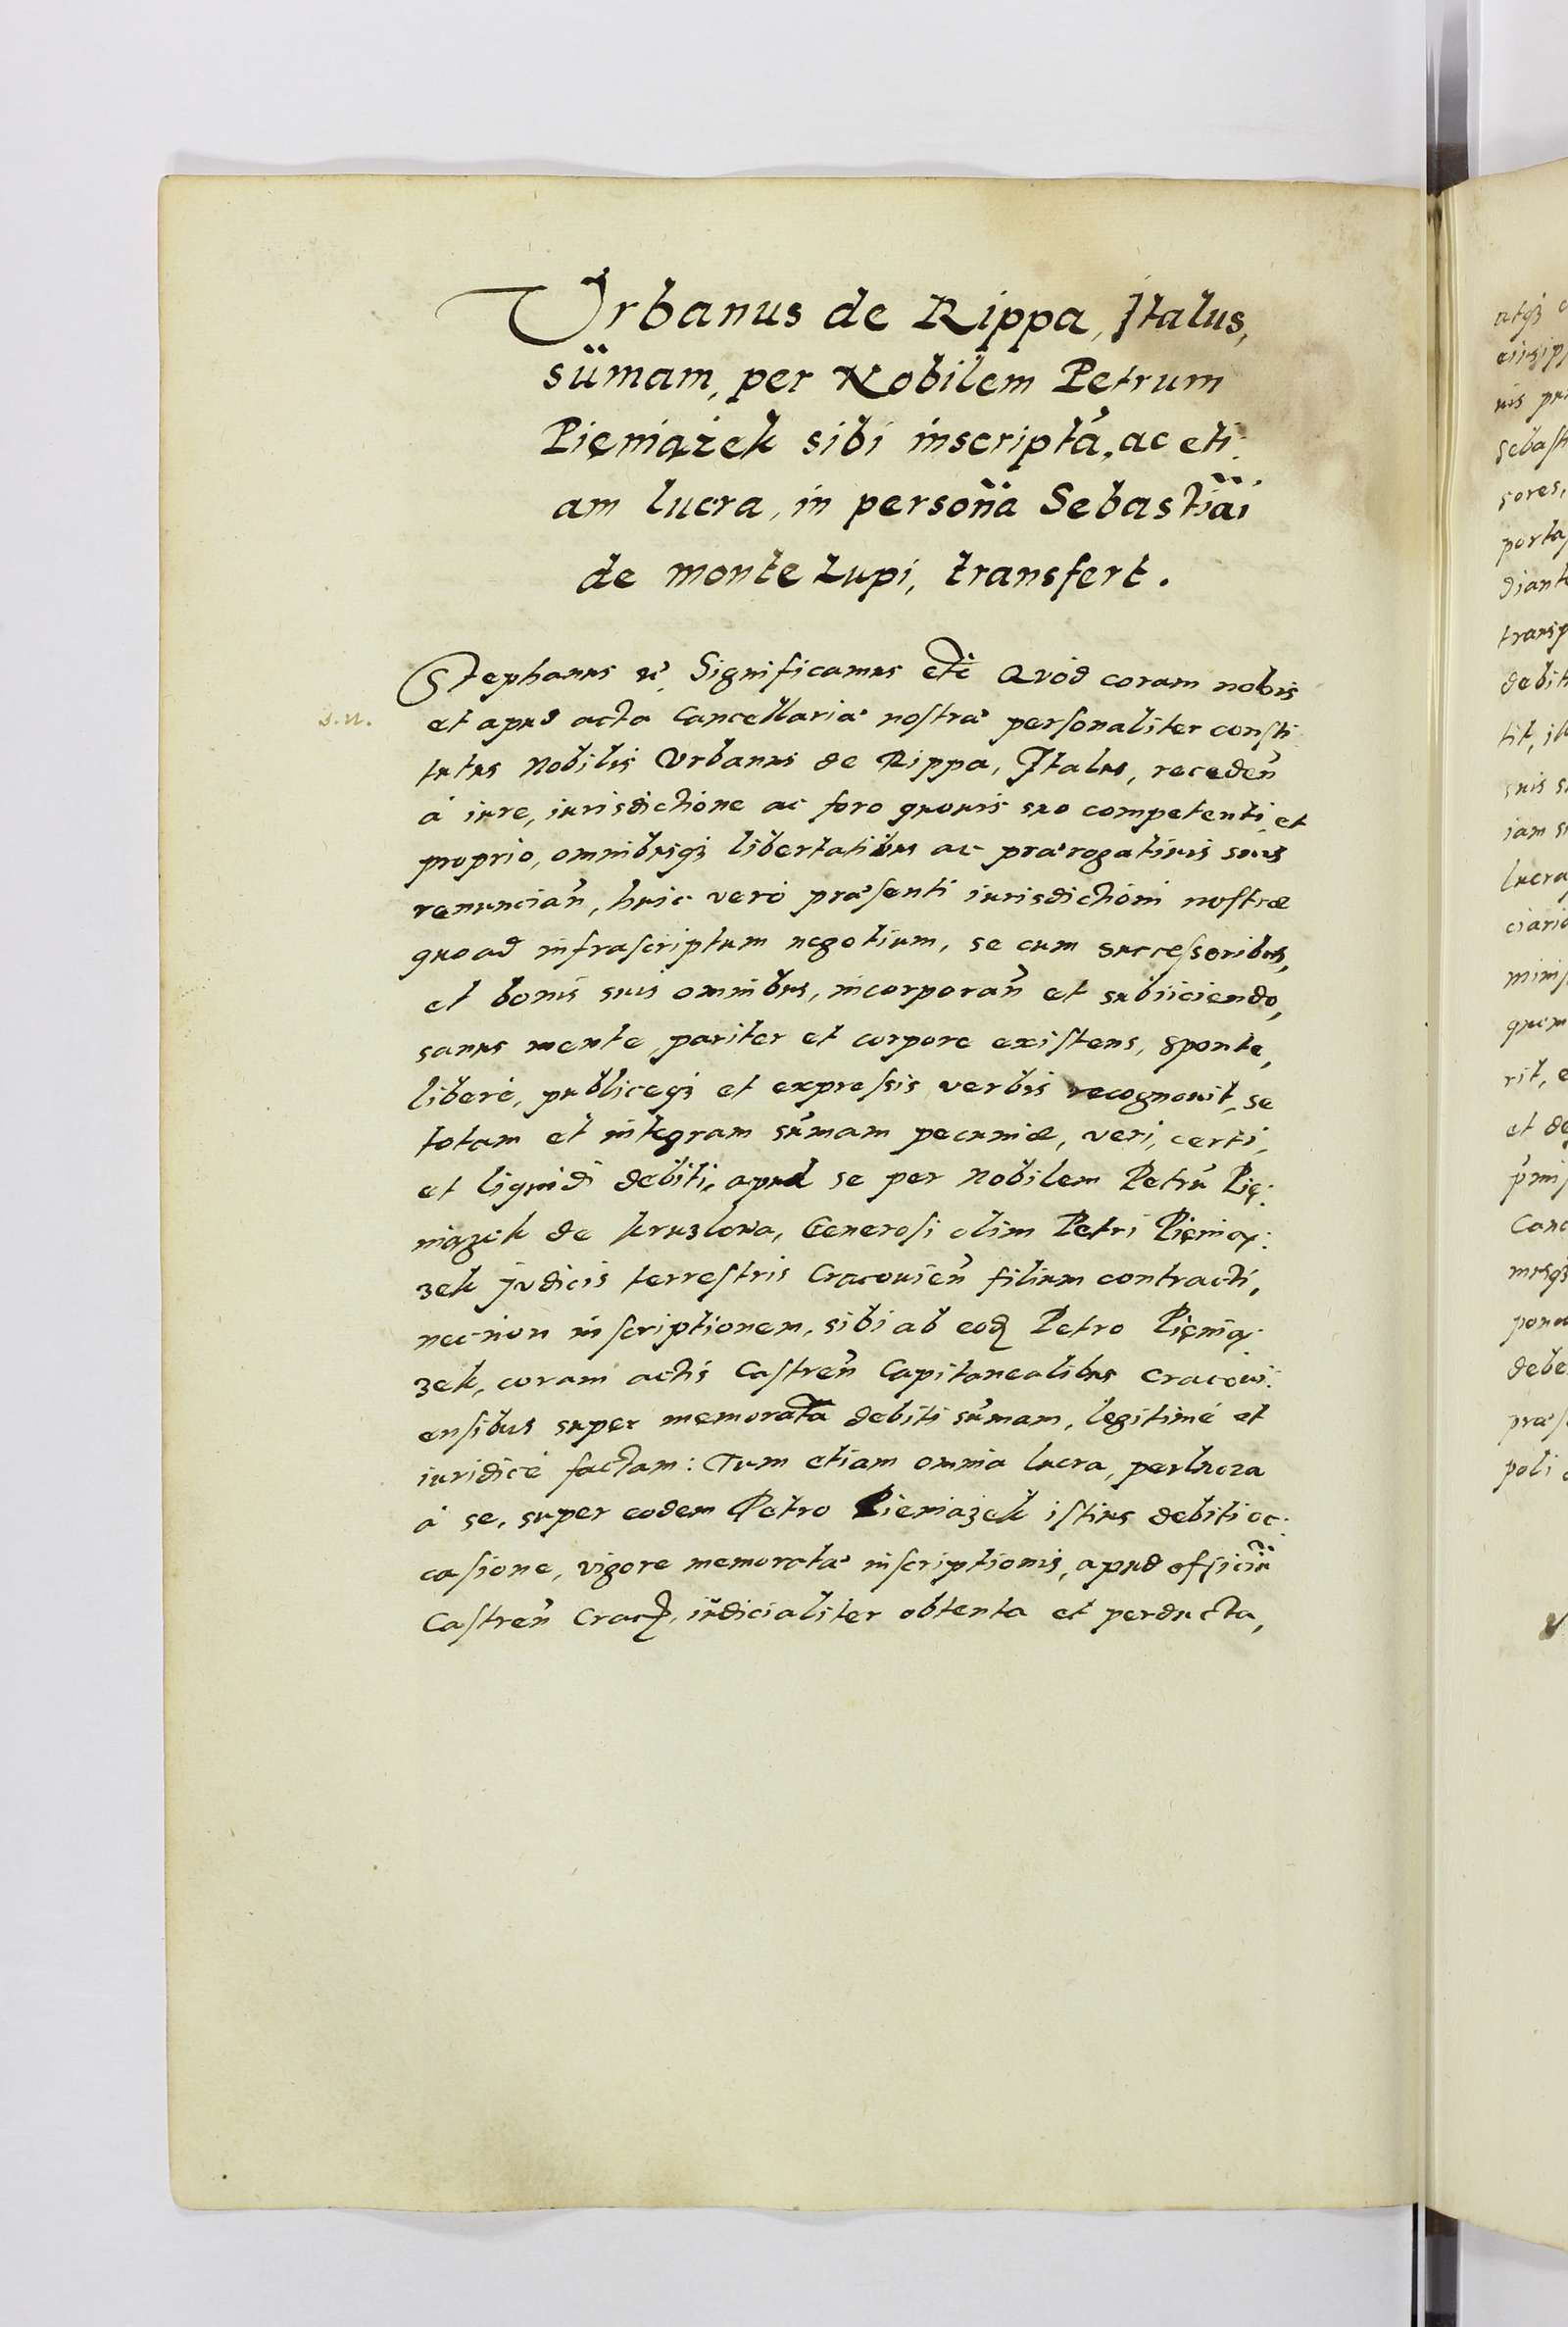 Urbanus de Rippa, Italus,
sum̄am, per Nobilem Petrum
Pieniążek sibi inscriptā, ac eti:
am lucra, in person̄a Sebastiāi
de monte Lupi, transfert.
Stephanus etc̄ Significamus etc̄ Quod coram nobis
s.n.
et apud acta Cancellariæ nostræ personaliter consti
tutus Nobilis Urbanus de Rippa, Italus, receden̄
à iure, iurisdictione ac foro quouis suo competenti, et
proprio, omnibusq₃ libertatibus ac prærogatiuis suis
renuncian̄, huic verò præsenti iurisdictioni nostræ
quoad infrascriptum negotium, se cum successoribus,
et bonis suis omnibus, incorporan̄ et subiiciendo,
sanus mente, pariter et corpore existens, sponte,
liberè, publiceq₃ et expressis verbis recognouit, se
totam et integram sum̄am pecuniæ, veri, certi,
et liquidi debiti, apud se per Nobilem Petrū Pię:
niązek de Kruzlowa, Generosi olim Petri Pięnią:
zek Judicis terrestris Cracouien̄ filium contracti,
nec non inscriptionem, sibi ab eod̄ Petro Pięnią:
zek, coram actis Castren̄ Capitanealibus Cracoui:
ensibus super memorata debiti sum̄am, legitimè et
iuridicè factam: Tum etiam omnia lucra, perlucra
à se, super eodem Petro Pieniązek istius debiti oc:
casione, vigore memoratæ inscriptionis, apud officiū
Castren̄ Crac̄, iudicialiter obtenta et perducta,